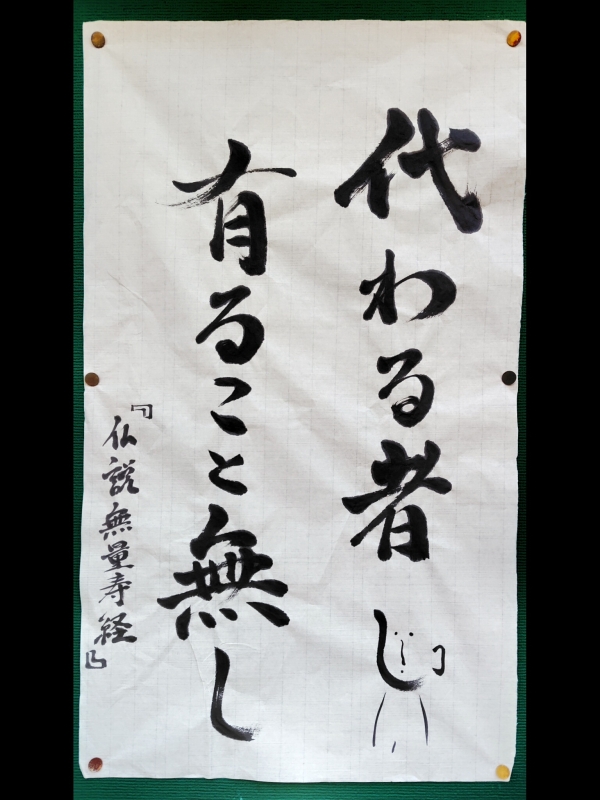 代わる者
有ること無し
『仏説無量寿経』